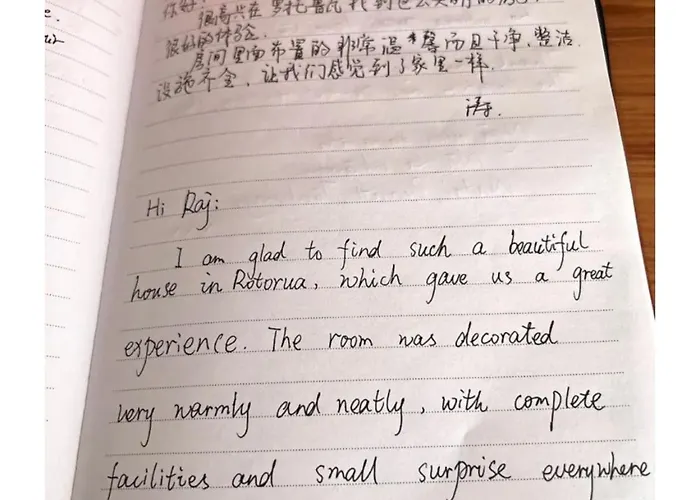 你好:
很高兴在罗托鲁瓦找到这么美丽的房子
很好的体验.
房间里面布置的非常温馨而且干净、整洁.
设施齐全, 让我们感觉到了家里一样.
涛.
Hi Raj:
I am glad to find such a beautiful
house in Rotorua, which gave us a great
experience. The room was decorated
very warmly and neatly, with complete
facilities and small surprise everywhere